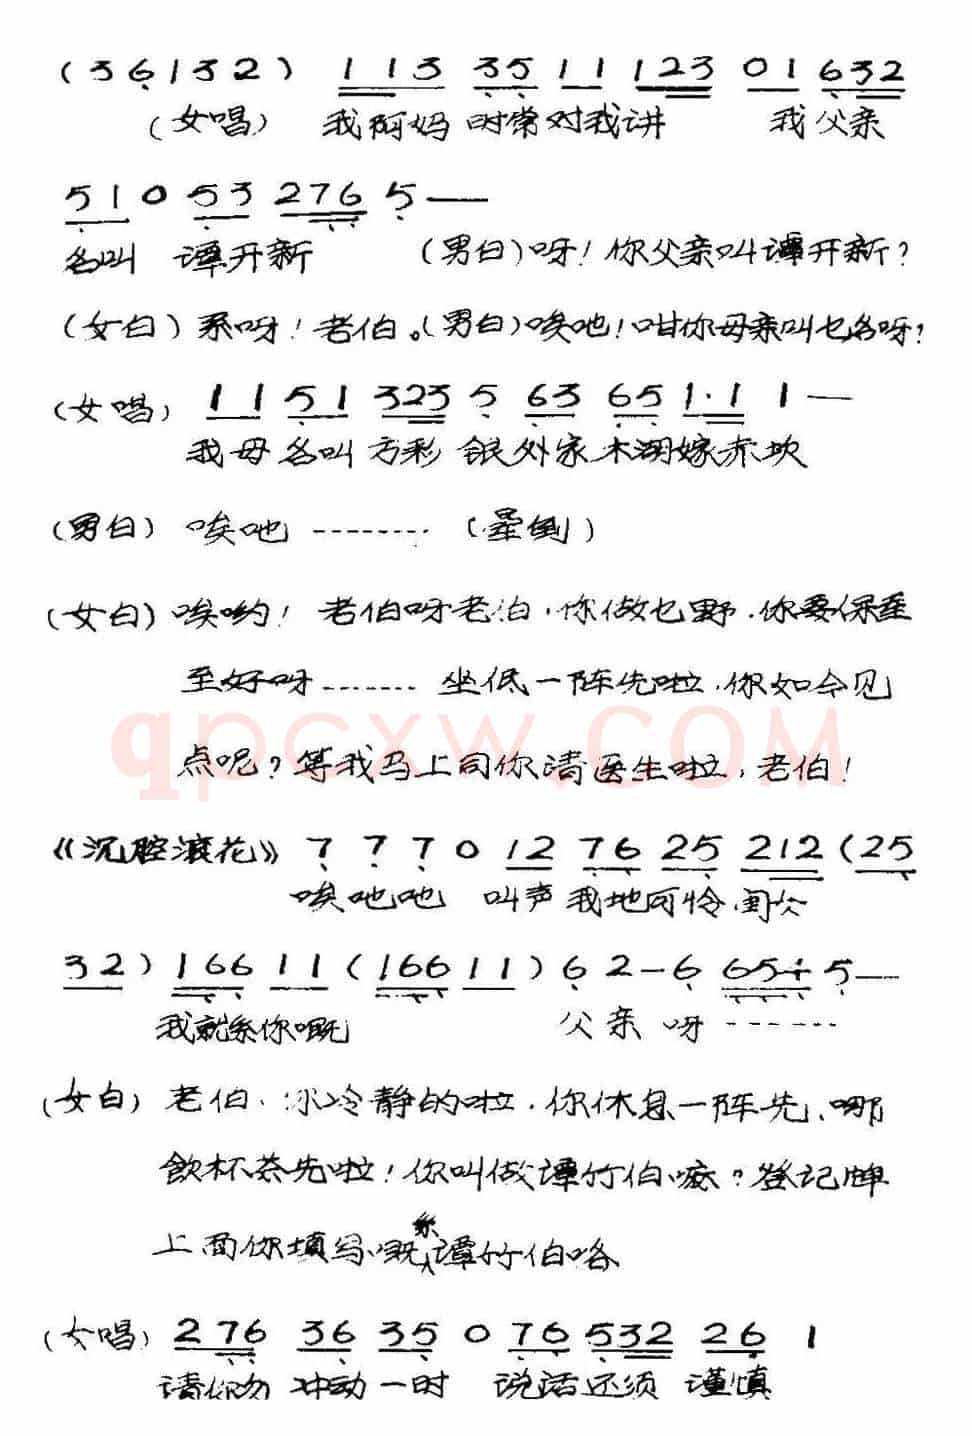 (36132) 113 35 11 123 01 632
(女唱) 我阿妈时常对我讲 我父亲
510 53 276 5—
名叫 谭开新 (男白)呀!你父亲叫谭开新?
(女白)系呀!老伯。(男白)唉吔!咁你母亲叫乜名呀?
(女唱) 11 51 323 5 63 65 1·1 1—
我母名叫方彩银外家木湖嫁赤坎
(男白) 唉吔 -------- (晕倒)
(女白) 唉哟! 老伯呀老伯,你做乜野,你要保重
至好呀------- 坐低一阵先啦,你如今见
点呢?等我马上同你请医生啦,老伯!
《沉腔滚花》 7 7 7 0 12 76 25 212 (25
唉吔吔 叫声我地可怜闺女
32) 166 11 (166 11) 6 2-6 654 5—
我就系你嘅 父亲呀-------
(女白) 老伯,你冷静的啦,你休息一阵先,嗱
飲杯茶先啦!你叫做谭竹伯,嘛?登记牌
上面你填写嘅系谭竹伯咯
(女唱) 276 36 35 0 76 532 26 1
请你勿 冲动一时 说话还须 谨慎
qpcxw.COM